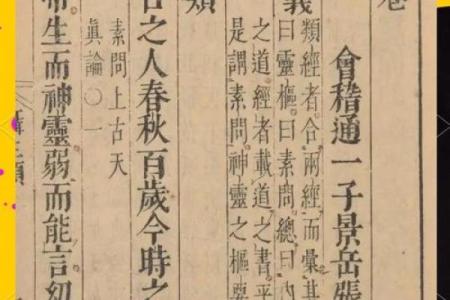 卷
會稽通一子景岳張
義
類經者合兩經而彙其
曰靈樞曰素問總曰內
之道經者載道之書平
是謂素問神靈之樞要
類
古之人春秋百歲今時之
素問上古天
眞論〇一
帝生而神靈弱而能言幼